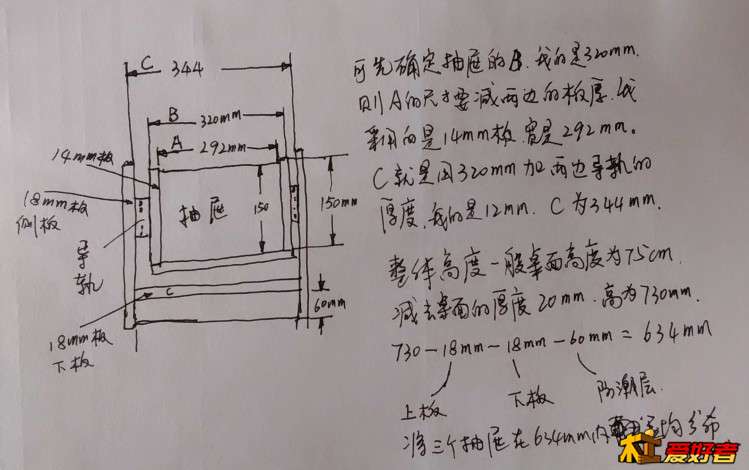 C 344
B 320mm
A 292mm
14mm板
18mm板
侧板
导
轨
抽屉
150
150mm
C
60mm
18mm板
下板
可先确定抽屉的B.我的是320mm.
则A的尺寸要减两边的板厚.我
采用的是14mm板.宽是292mm。
C就是用320mm加两边导轨的
厚度.我的是12mm. C为344mm.
整体高度一般桌面高度为75cm
减去桌面的厚度20mm.高为730mm.
730-18mm-18mm-60mm=634mm
上板 下板 防潮层.
将三个抽屉在634mm内 平均分布
木工爱好者